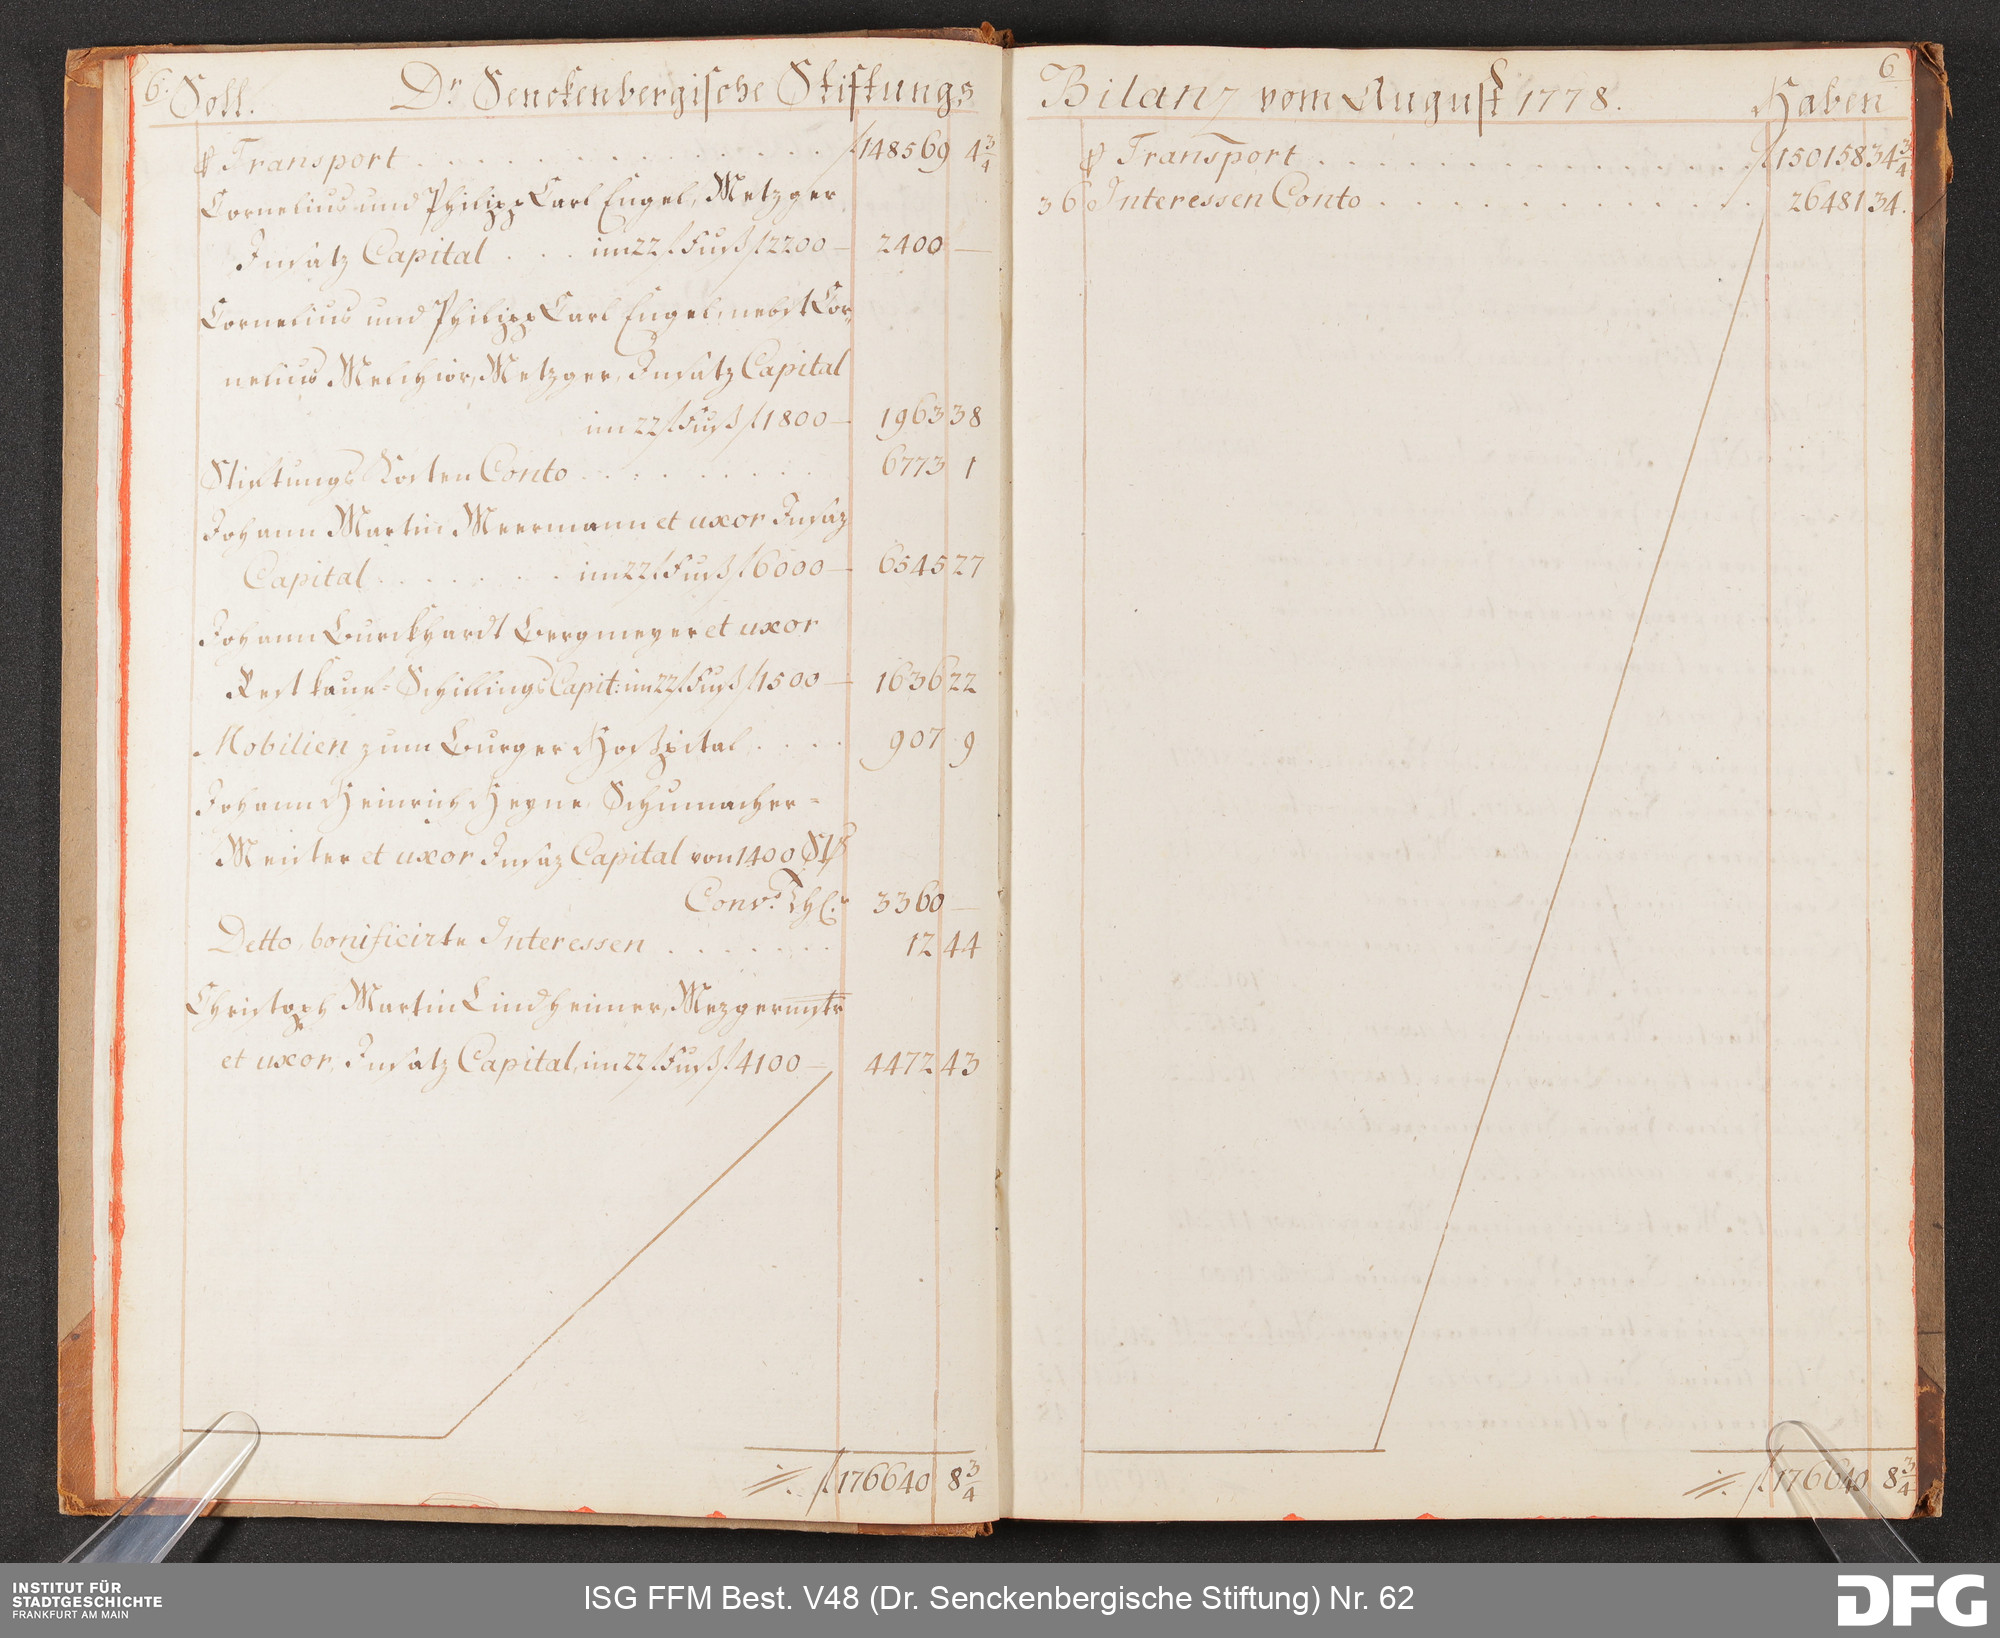 6. Soll. Dr. Senckenbergische Stiftungs
Transport . . . . . . . . . . . . f 148569 4 3/4
Cornelius und Philipp Carl Engel, Metzger
Insatz Capital . . . im 22 f Fuß f 2200 — 2400 —
Cornelius und Philipp Carl Engel, nebst Cor-
nelius Melchior, Metzger, Insatz Capital
im 22 f Fuß f 1800 — 1963 38
Stiftungs Kosten Conto . . . . . . . . . 6773 1
Johann Martin Meermann et uxor Insaz
Capital . . . . . . . im 22 f Fuß f 6000 — 6545 27
Johann Burckhardt Bergmeyer et uxor
Rest kauf-Schillings Capit: im 22 f Fuß f 1500 — 1636 22
Mobilien zum Burger Hospital . . . . 907 9
Johann Heinrich Heyne, Schumacher-
Meister et uxor Insaz Capital von 1400 Stk
Conv.s Thlr 3360 —
Detto, bonificirte Interessen . . . . . . . 12 44
Christoph Martin Lindheimer, Mezgermstr
et uxor, Insatz Capital, im 22 f Fuß f 4100 — 4472 43
f 176640 8 3/4
Bilanz vom August 1778. Haben 6
Transport . . . . . . . . . . . . . f 150158 34 3/4
36 Interessen Conto . . . . . . . . . . . . 26481 34.
f 176640 8 3/4
INSTITUT FÜR
STADTGESCHICHTE
FRANKFURT AM MAIN
ISG FFM Best. V48 (Dr. Senckenbergische Stiftung) Nr. 62
DFG